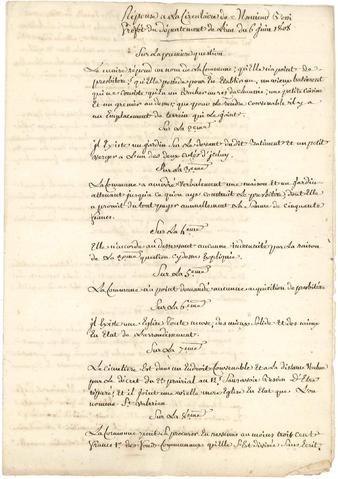 Réponse a La Circulaire de Monsieur
Préfet du département de Lain du 6 juin 1808
Sur La première question
Le maire répond au nom de La Commune, qu'elle n'a point de
presbitère; qu'elle possède pour un Etablir un, un vieux batiment
qui ne Consiste qu'à un chambre au rez de chaussée, une petite cuisine
Et un grenier au dessus, que pour le rendre Convenable il y a
un Emplacement de terrein qui Le joint.
Sur La 2eme
il Existe un jardin Sur Le devant du dit Batiment et un petit
verger a L'un des deux Cotés d'icelui.
Sur La 3eme
La Commune a verbalement une maison et un jardin
attenant jusqu'à Ce qu'on aye Construit Le presbitère, dont Elle
a promit du tout payer annuellement La Somme de Cinquante
francs.
Sur La 4eme
Elle n'accorde au desservant aucune indemnité par La raison
de La question Cydessus Expliquée.
Sur La 5eme
La Commune n'a point demandé aucune acquisition de presbitère
Sur La 6eme
il Existe une Eglise toute neuve, des mieux Solide et des mieux
En Etat de L'arrondissement.
Sur La 7eme
Le cimetière Est dans un Endroit Convenable Et a La distance Voulue
par Le décret du 23 prairial an 12,
réparé; et il joint une vieille mere Eglise En Etat que L'on
nomme St. Valérien
Sur La 8eme
La Commune peut Se procurer En au moins trois Cent
francs